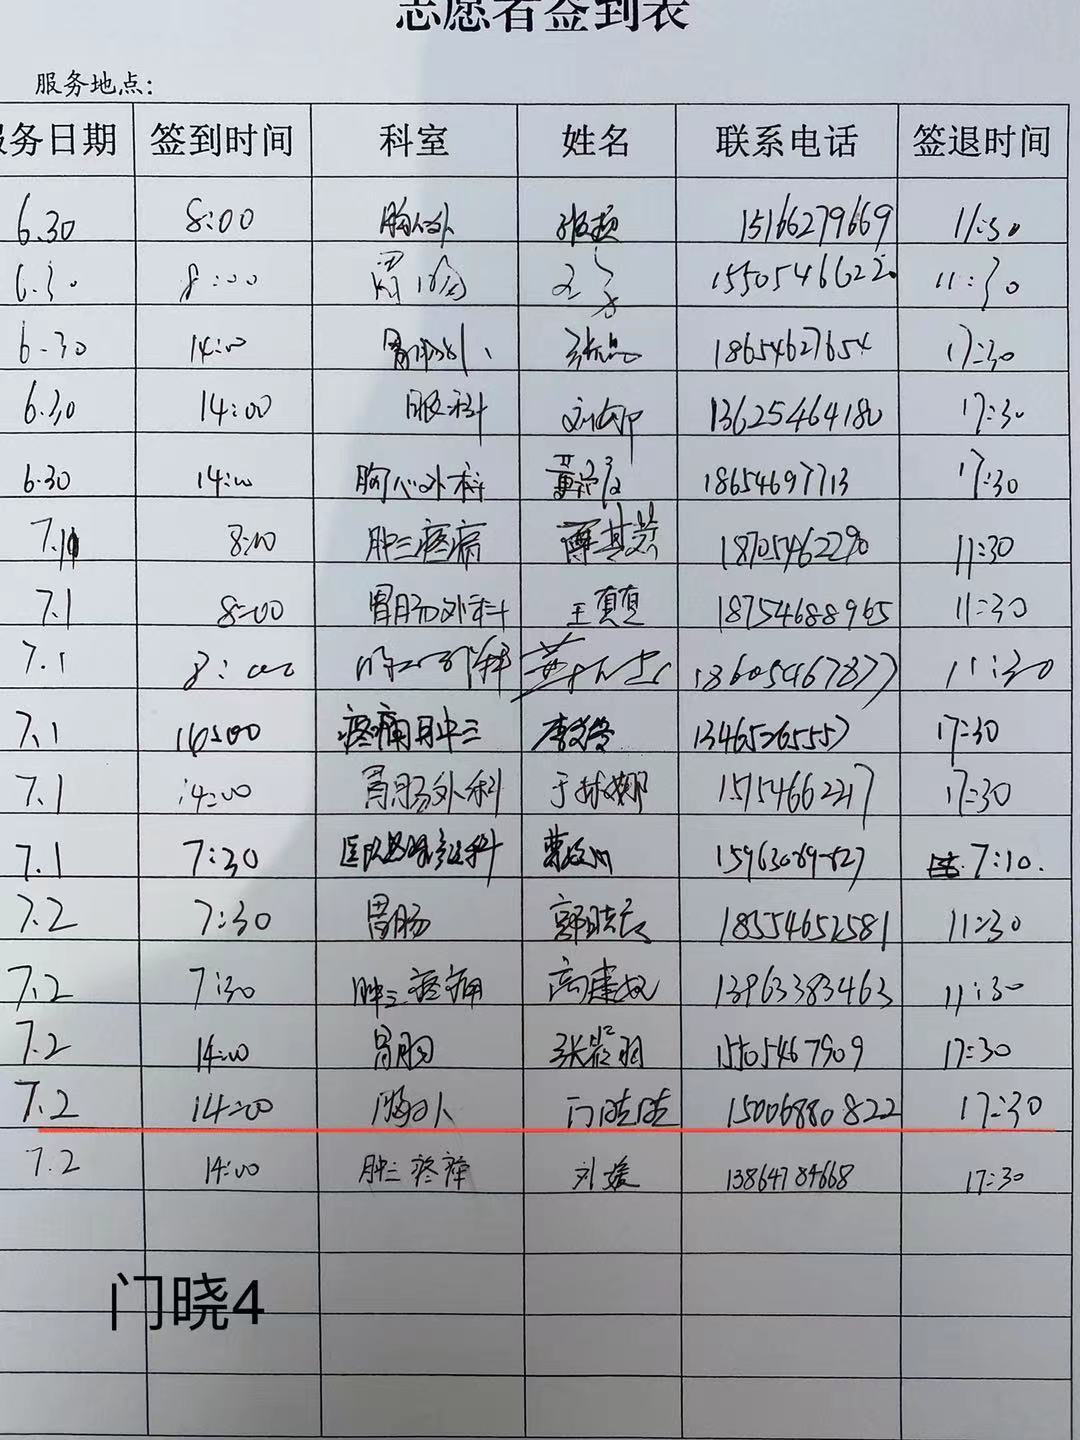 志愿者签到表
服务地点：
服务日期 签到时间 科室 姓名 联系电话 签退时间
6.30 8:00 胸外 15166279669 11:30
6.30 8:00 胃肠 15505466220 11:30
6.30 14:00 胃肠外 18654627654 17:30
6.30 14:00 眼科 13625464180 17:30
6.30 14:00 胸心外科 18654697713 17:30
7.1 8:00 肿三疼痛 18705462290 11:30
7.1 8:00 胃肠外科 王真真 18754688965 11:30
7.1 8:00 18605467877 11:30
7.1 疼痛肿三 13465265557 17:30
7.1 14:00 胃肠外科 于林娜 15754662217 17:30
7.1 7:30 7:10.
7.2 7:30 胃肠 18554652581 11:30
7.2 7:30 肿三疼痛 13963383463 11:30
7.2 14:00 15505467909 17:30
7.2 14:00 胸外 门晓晓 15006880822 17:30
7.2 14:00 肿三疼痛 刘媛 13864784668 17:30
门晓4